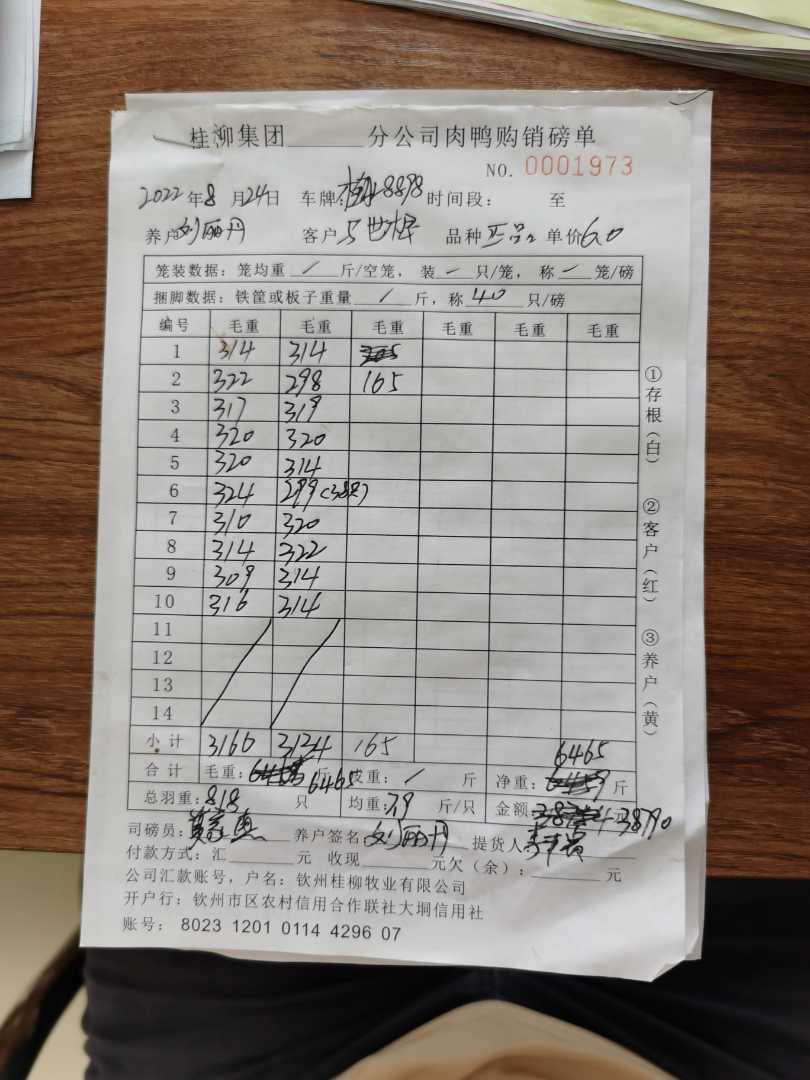 桂柳集团______分公司肉鸭购销磅单
NO. 0001973
2022年8月24日 车牌:桂 8898 时间段: 至
养户刘丽丹 客户 品种 正品 单价6.0
笼装数据: 笼均重 / 斤/空笼, 装 一 只/笼, 称 一 笼/磅
捆脚数据: 铁筐或板子重量 / 斤, 称 40 只/磅
编号 毛重 毛重 毛重 毛重 毛重 毛重
1 314 314
2 322 298 165
3 317 319
4 320 320
5 320 314
6 324 299(38只)
7 310 320
8 314 322
9 309 314
10 316 314
11
12
13
14
小计 3166 3134 165
合计 毛重: 6465 斤 皮重: / 斤 净重: 6465 斤
总羽重: 818 只 均重: 7.9 斤/只 金额: 38790
司磅员: 养户签名: 刘丽丹 提货人:
付款方式: 汇______元 收现______元欠(余): ______元
公司汇款账号, 户名: 钦州桂柳牧业有限公司
开户行: 钦州市区农村信用合作联社大垌信用社
账号: 8023 1201 0114 4296 07
①存根(白) ②客户(红) ③养户(黄)